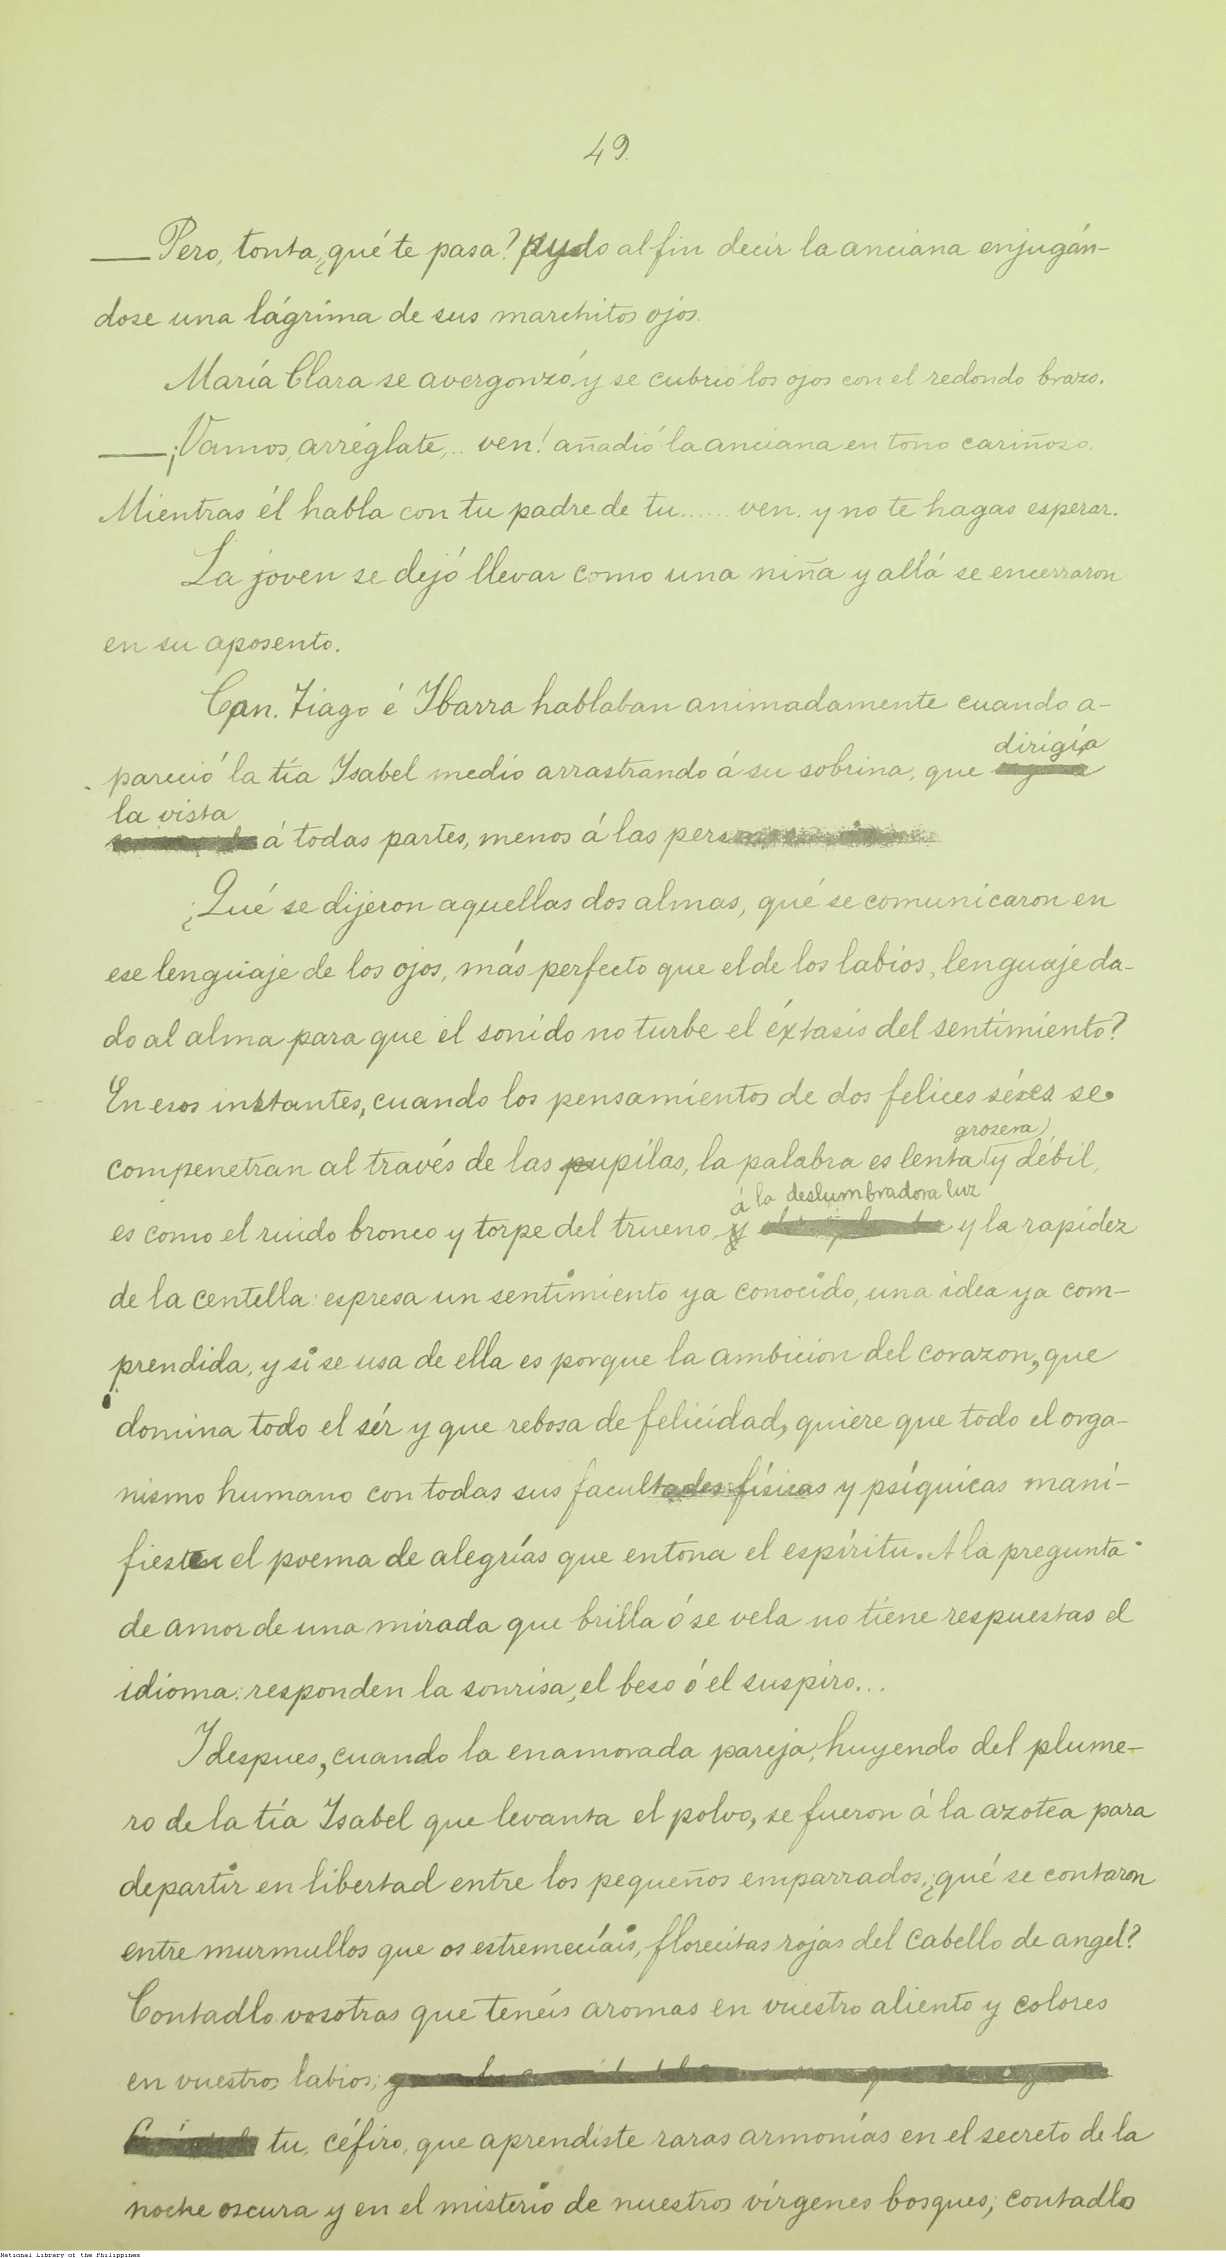 49.
— Pero, tonta, ¿qué te pasa? pudo al fin decir la anciana enjugán-
dose una lágrima de sus marchitos ojos.
María Clara se avergonzó y se cubrió los ojos con el redondo brazo.
— ¡Vamos, arréglate,.. ven! añadió la anciana en tono cariñoso.
Mientras él habla con tu padre de tu...... ven. y no te hagas esperar.
La joven se dejó llevar como una niña y allá se encerraron
en su aposento.
Cpn. Tiago é Ibarra hablaban animadamente cuando a-
dirigía
pareció la tía Isabel medio arrastrando á su sobrina, que
la vista
á todas partes, menos á las
¿Qué se dijeron aquellas dos almas, qué se comunicaron en
ese lenguaje de los ojos, más perfecto que el de los labios, lenguaje da-
do al alma para que el sonido no turbe el éxtasis del sentimiento?
En esos instantes, cuando los pensamientos de dos felices séres se
grosera
compenetran al través de las pupilas, la palabra es lenta y débil,
á la deslumbradora luz
es como el ruido bronco y torpe del trueno y y la rapidez
de la centella: espresa un sentimiento ya conocido, una idea ya com-
prendida, y si se usa de ella es porque la ambicion del corazon, que
domina todo el sér y que rebosa de felicidad, quiere que todo el orga-
nismo humano con todas sus facultades físicas y psíquicas mani-
fieste el poema de alegrías que entona el espíritu. A la pregunta
de amor de una mirada que brilla ó se vela no tiene respuestas el
idioma: responden la sonrisa, el beso ó el suspiro...
I despues, cuando la enamorada pareja, huyendo del plume-
ro de la tía Isabel que levanta el polvo, se fueron á la azotea para
departir en libertad entre los pequeños emparrados, ¿qué se contaron
entre murmullos que os estremecíais, florecitas rojas del cabello de angel?
Contadlo vosotras que tenéis aromas en vuestro aliento y colores
en vuestros labios;
tu, céfiro, que aprendiste raras armonías en el secreto de la
noche oscura y en el misterio de nuestros vírgenes bosques; contadlo
National Library of the Philippines